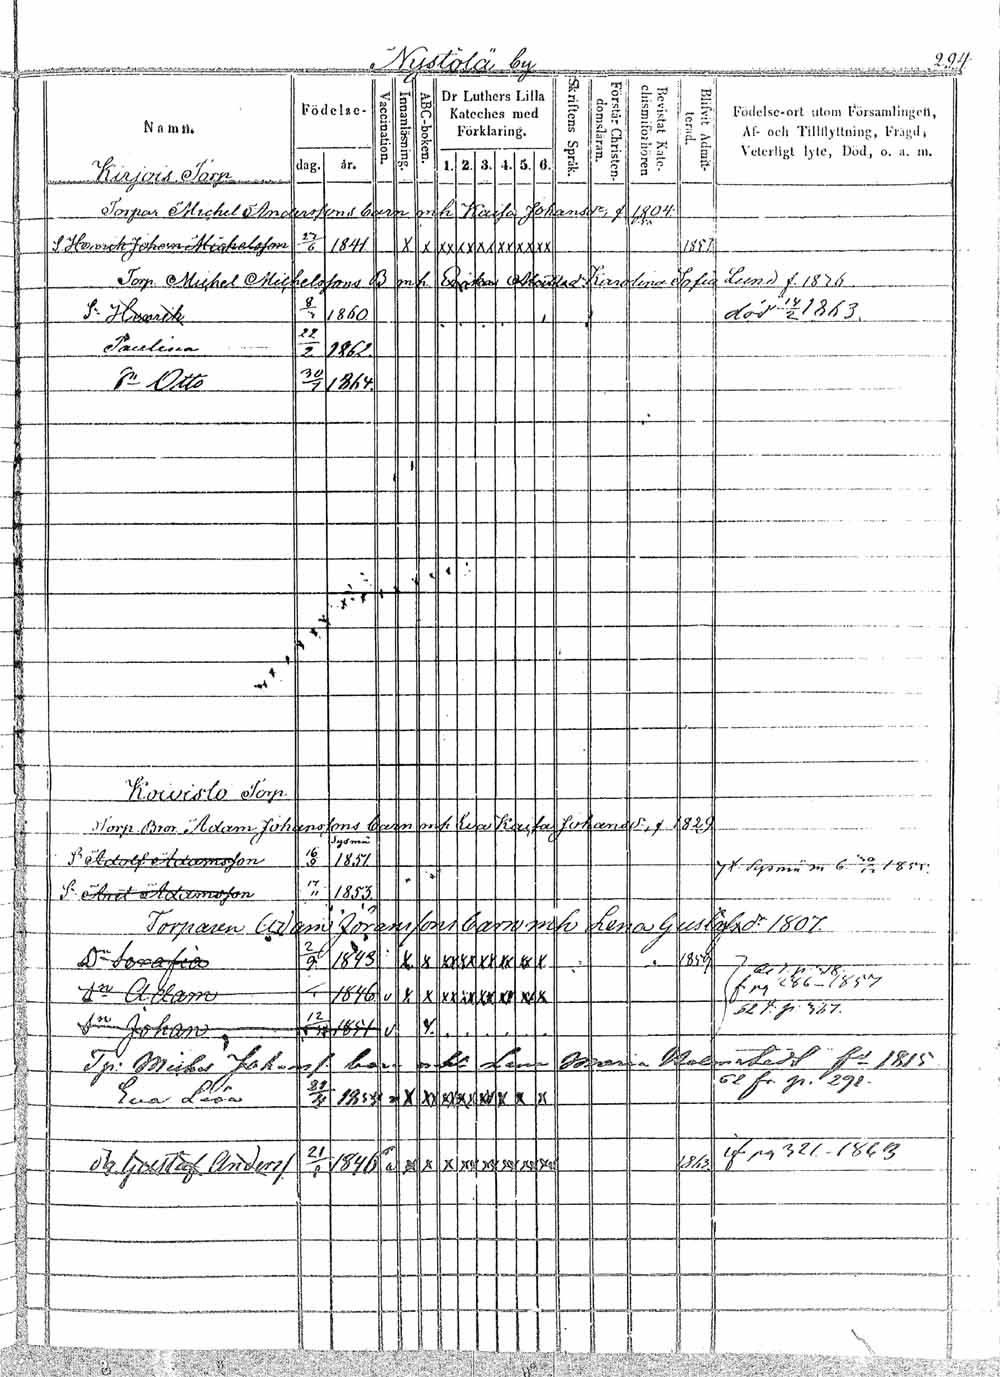 Nystölä by
294
Namn.
Födelse-
dag. år.
Vaccination.
Innanläsning.
ABC-boken.
Dr Luthers Lilla Kateches med Förklaring.
1. 2. 3. 4. 5. 6.
Skriftens Språk.
Förstår Christendomsläran.
Bevistat Katechismiförhören
Blifvit Admitterad.
Födelse-ort utom Församlingen, Af- och Tillflyttning, Frägd, Veterligt lyte, Död, o. a. m.
Kirjois Torp
Torpar Michel Anderssons barn m h Kaisa Johansdr, f 1804.
S Henrik Johan Michelsson 27/6 1841 x x xx xx xx xx xx xx 1857
Torp. Michel Michelssons B m h Karolina Sofia Lund f. 1826
Sn Henrik 8/7 1860 död 14/2 1863.
Paulina 22/2 1862
Sn Otto 30/7 1864.
Koivisto Torp.
Torp. Bror. Adam Johanssons barn m h Eva Kaisa Johansdr, f 1829
Sysmä
S Adolf Adamsson 16/3 1851 Sysmä m 6 1855.
S. Adamsson 17/11 1853
Torparen Adam Göranssons barn m h Lena Gustafsdr 1807
Dr Serafia 2/9 1843 x x xx xx xx xx xx x 1859
Sn Adam 1846 v x x xx xx xx xx xx x f pg 286-1857
Sn Johan 12/ 1851 v x. 62 f. p. 367.
Tp: Michel Johanss. barn m h Lena Maria Holmstedt fd 1815
62 fr. p. 298.
Eva Lisa
dr Gustaf Anderss 21/ 1846 1863. if pg 321-1863